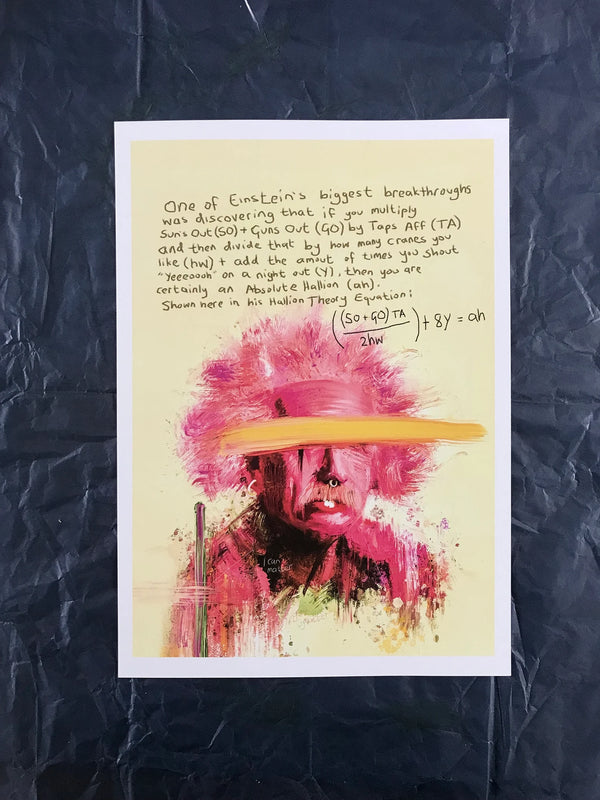 One of Einstein's biggest breakthroughs
was discovering that if you multiply
Sun's Out(SO) + Guns Out (GO) by Taps Aff (TA)
and then divide that by how many cranes you
like (hw) + add the amout of times you shout
"Yeeeoooh" on a night out (Y), then you are
certainly an Absolute Hallion (ah).
Shown here in his Hallion Theory Equation:
((SO+GO)TA / 2hw) + 8Y = ah